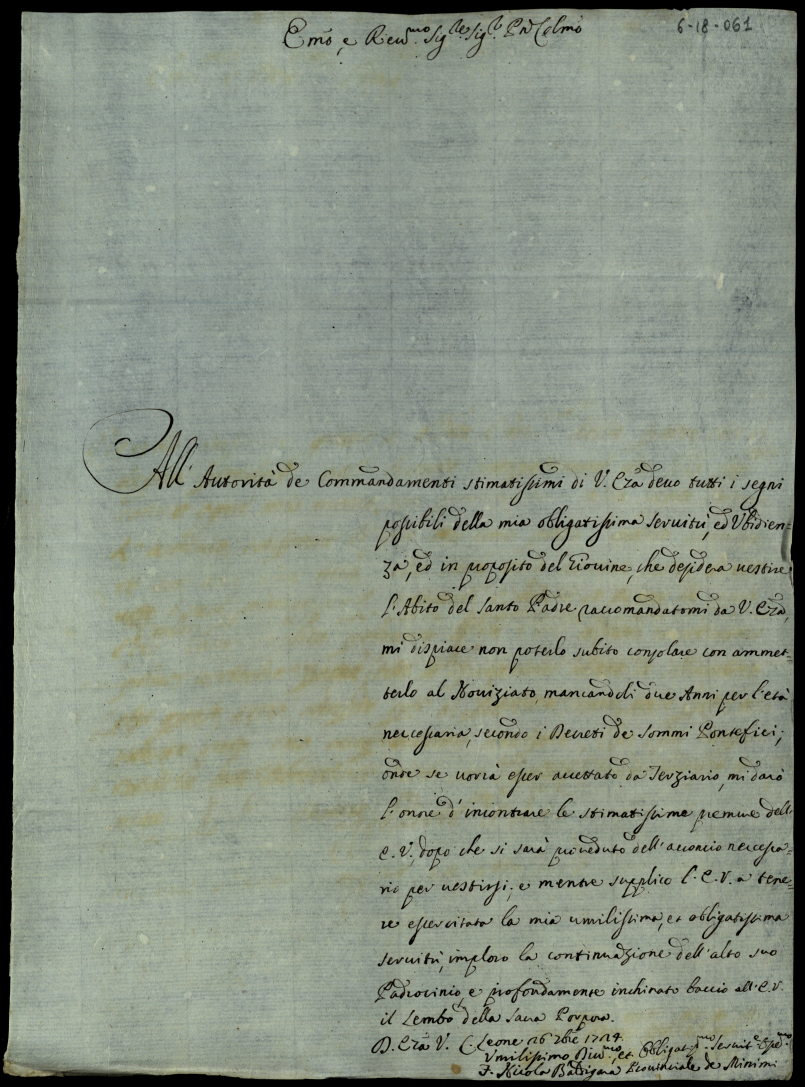 6-18-061
Emo, e Rev.mo Sig.re Sig.r Pñ Colmo
All' Autorità de Commandamenti stimatissimi di V. Eza devo tutti i segni
possibili della mia obligatissima servitù, ed Vbidien=
za, ed in proposito del Giovine, che desidera vestire
l'Abito del Santo Padre raccomandatomi da V. Eza,
mi dispiace non poterlo subito consolare con ammet=
terlo al Noviziato, mancandoli due Anni per l'età
neccessaria, secondo i Decreti de Sommi Pontefici;
onde se vorrà esser accettato da Terziario, mi darò
l'onore d'incontrare le stimatissime premure dell'
E.V., dopo che si sarà proveduto dell'acconcio neccessa=
rio per vestirsi; e mentre supplico l'E.V. a tene=
re essercitata la mia umilissima, et obligatissima
servitù, imploro la continuazione dell'alto suo
Padrocinio, e profondamente inchinato baccio all'E.V.
il Lembo della Sacra Porpora.
D. Eza V. Leone 26 1724
Vmilissimo Div.mo, et Obligatis.mo Servit.e
F. Nicola Provinciale de Minimi